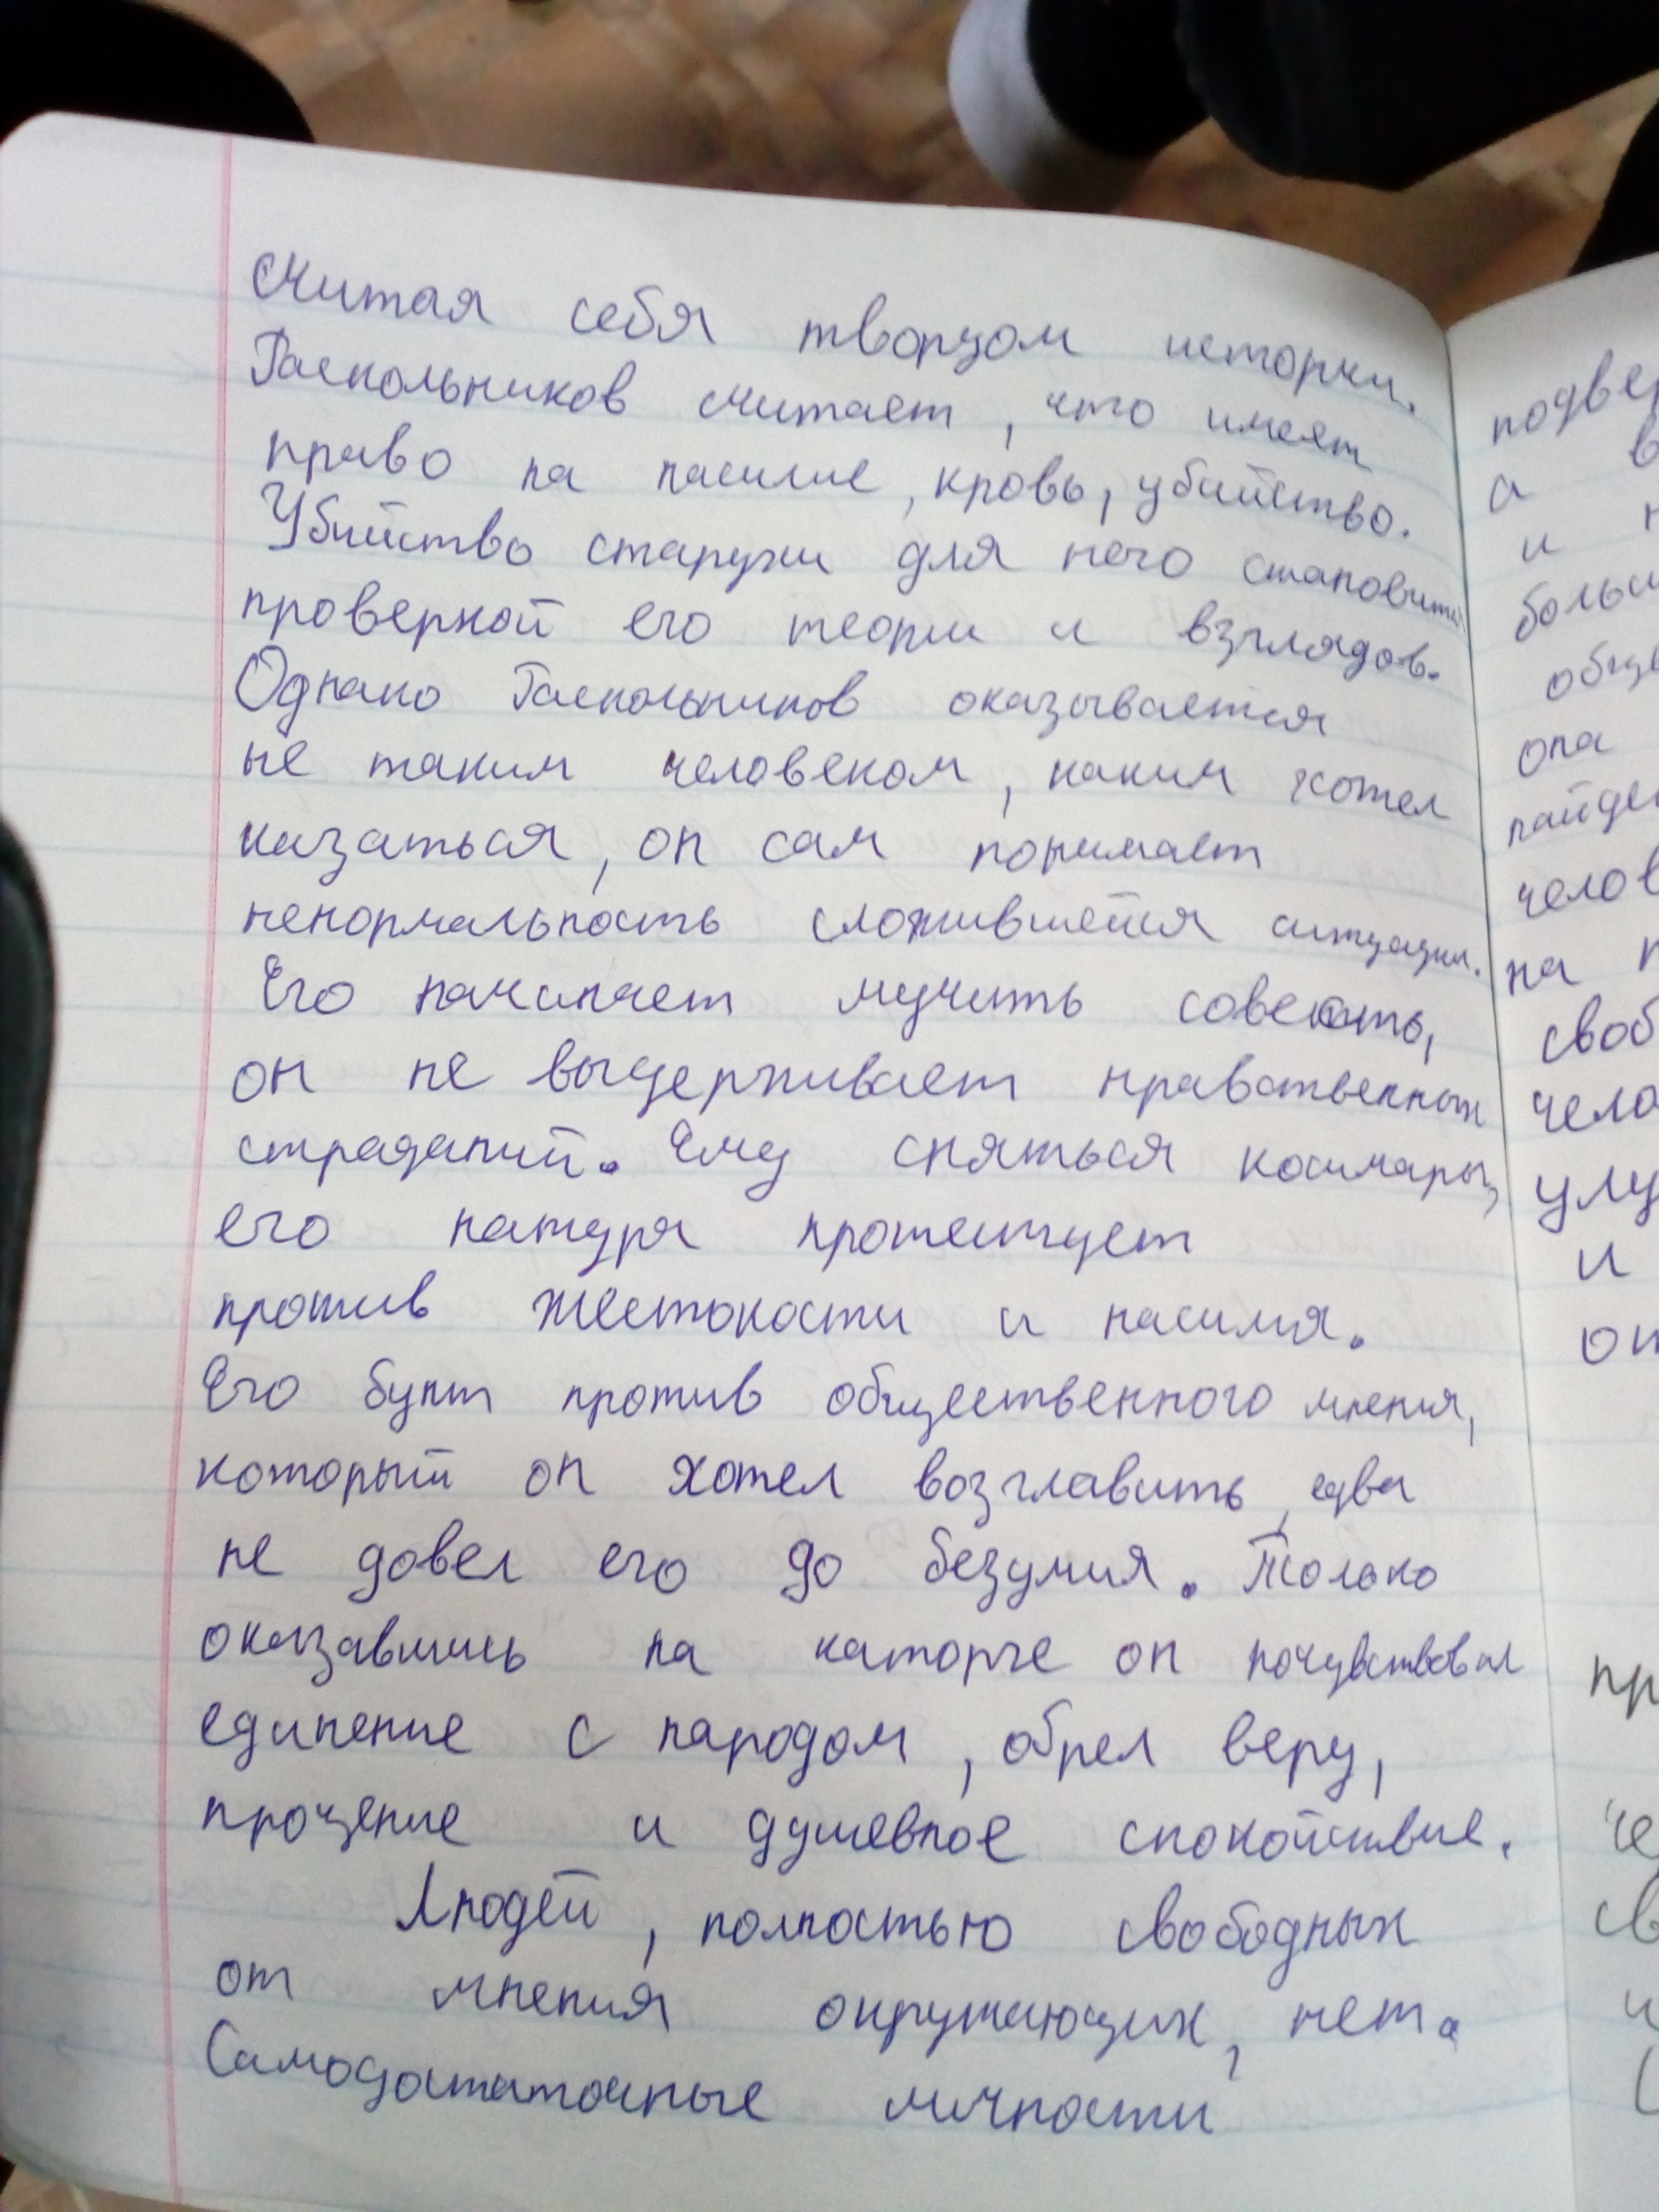 Считая себя творцом истории.
Раскольников считает, что имеет
право на насилие, кровь, убийство.
Убийство старухи для него становится
проверкой его теории и взглядов.
Однако Раскольников оказывается
не таким человеком, каким хотел
казаться, он сам понимает
ненормальность сложившейся ситуации.
Его начинает мучить совесть,
он не выдерживает нравственных
страданий. Ему сняться кошмары,
его натура протестует
против жестокости и насилия.
Его бунт против общественного мнения,
который он хотел возглавить, едва
не довел его до безумия. Только
оказавшись на каторге он почувствовал
единение с народом, обрел веру,
прощение и душевное спокойствие.
Людей, полностью свободных
от мнения окружающих, нет.
Самодостаточные личности
а
и
она
на
и